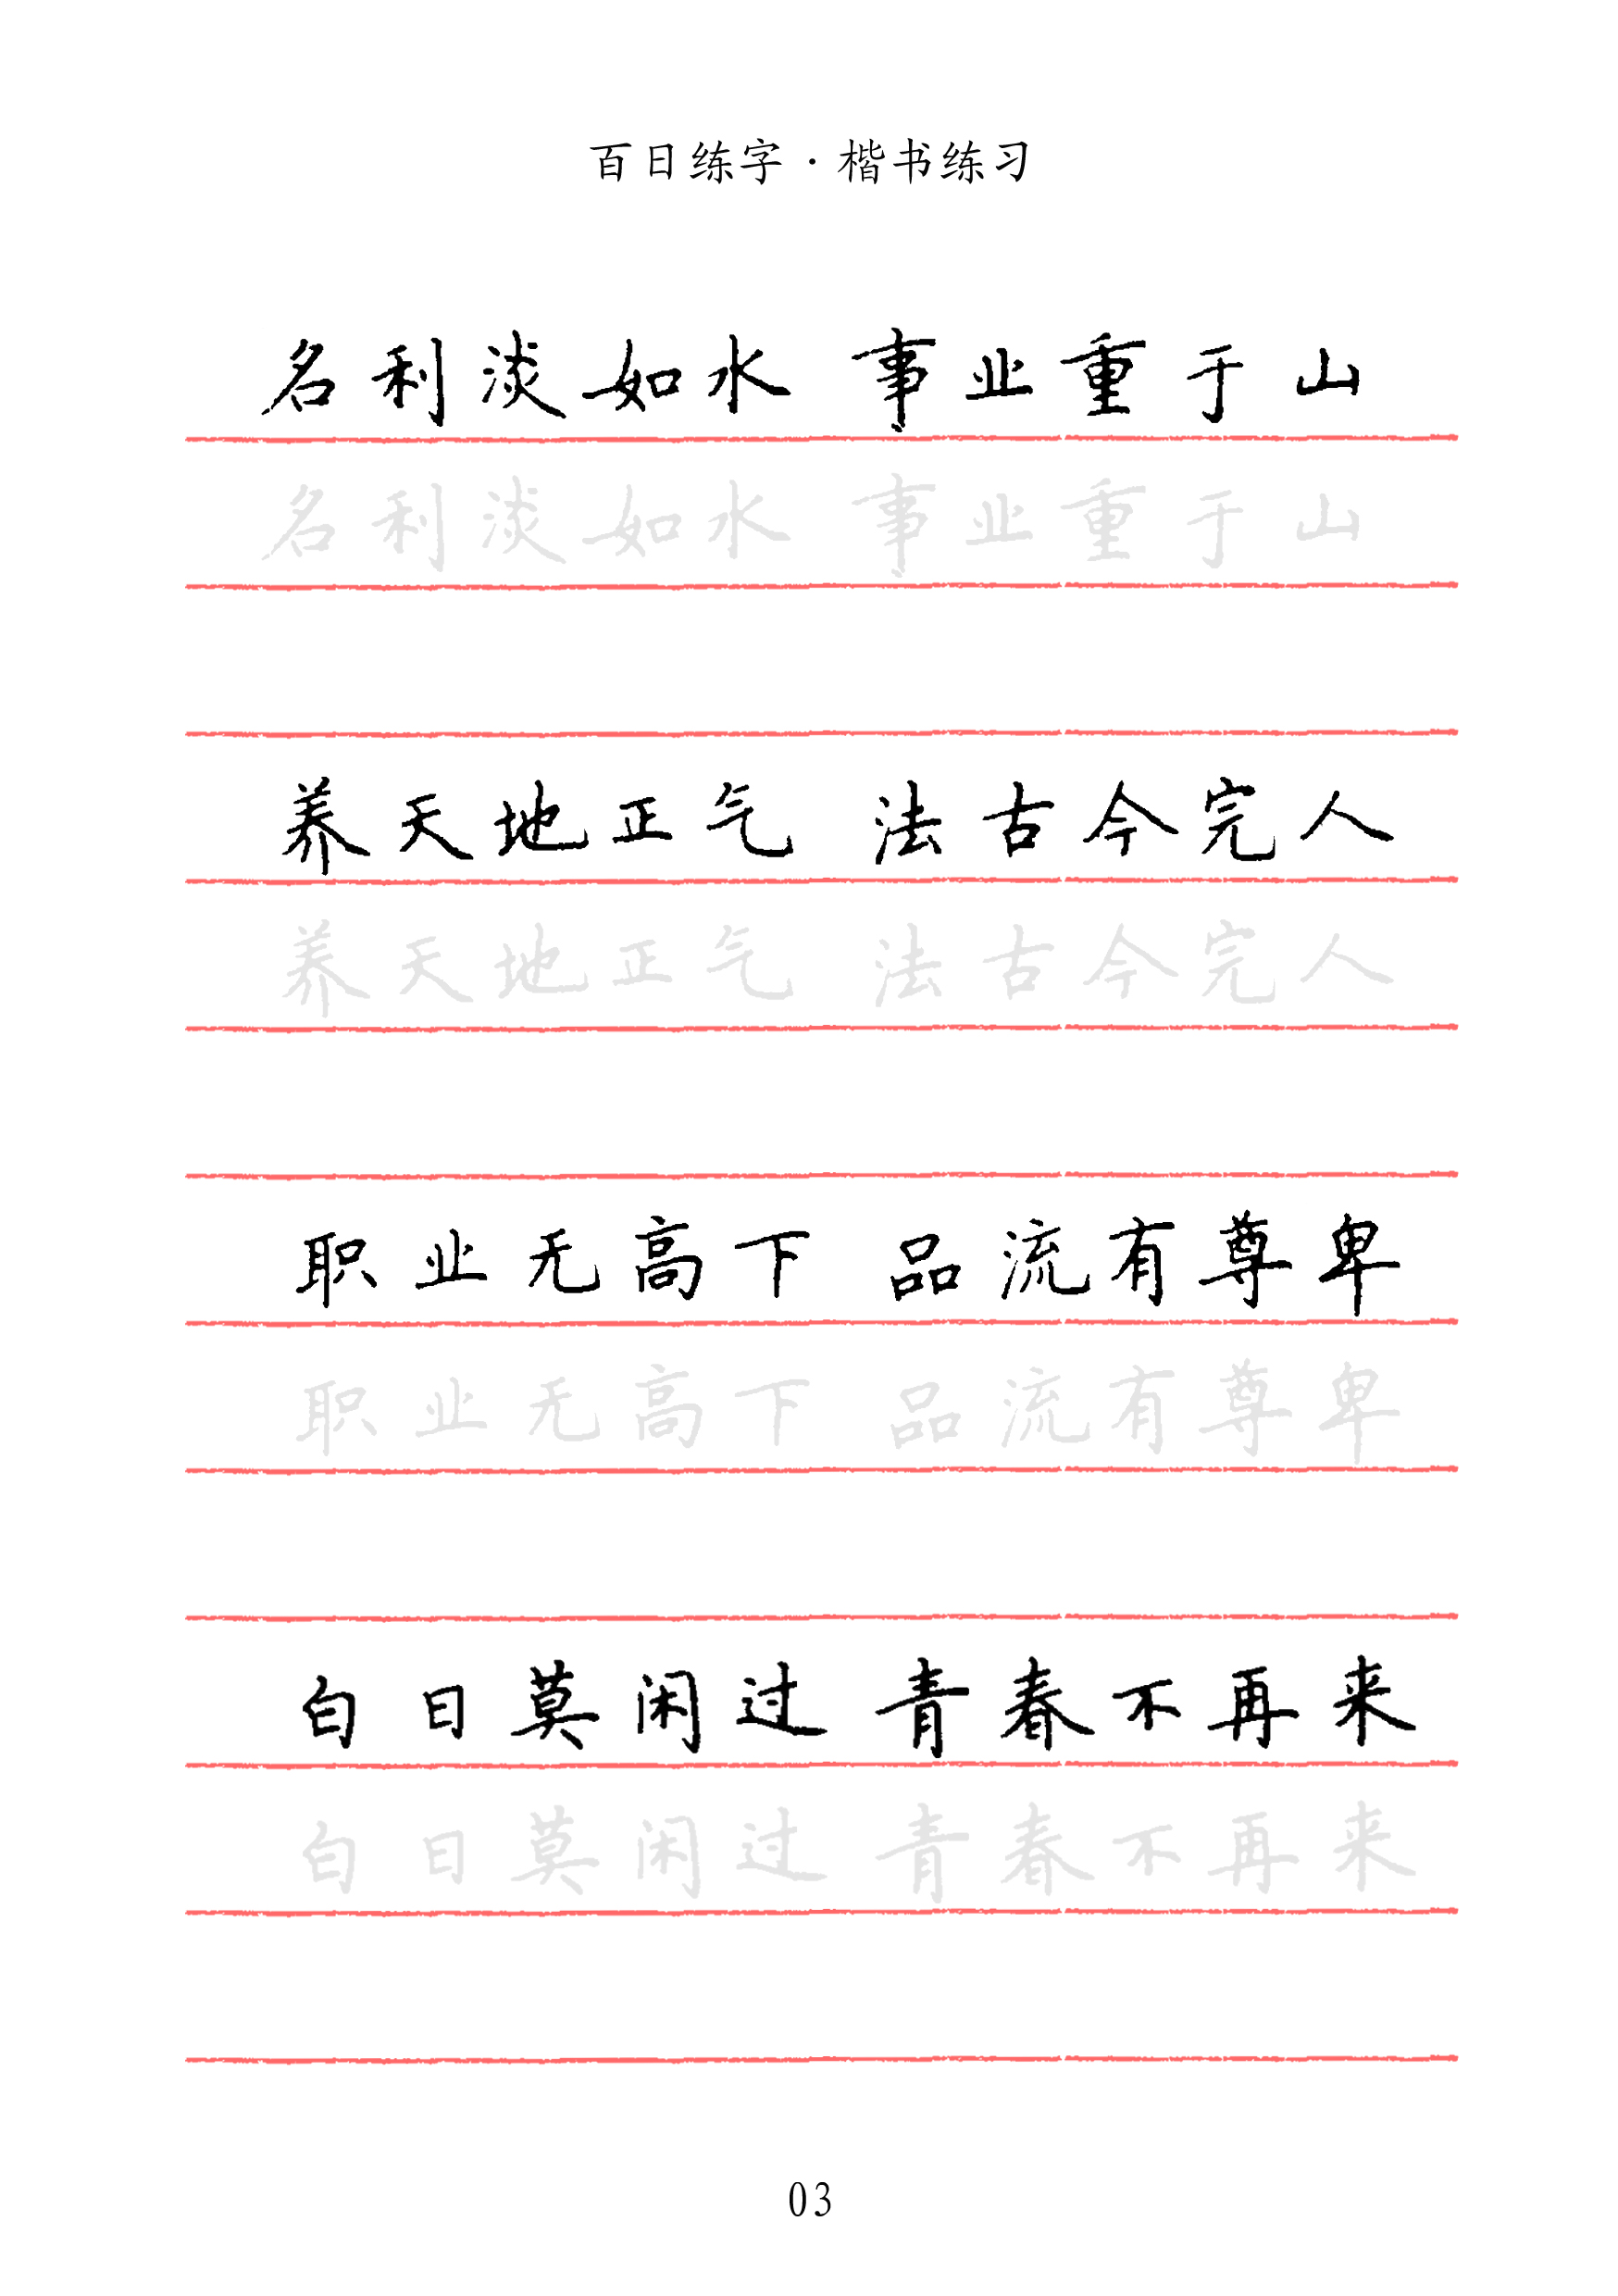 百日练字·楷书练习
名利淡如水 事业重于山
名利淡如水 事业重于山
养天地正气 法古今完人
养天地正气 法古今完人
职业无高下 品流有尊卑
职业无高下 品流有尊卑
白日莫闲过 青春不再来
白日莫闲过 青春不再来
03